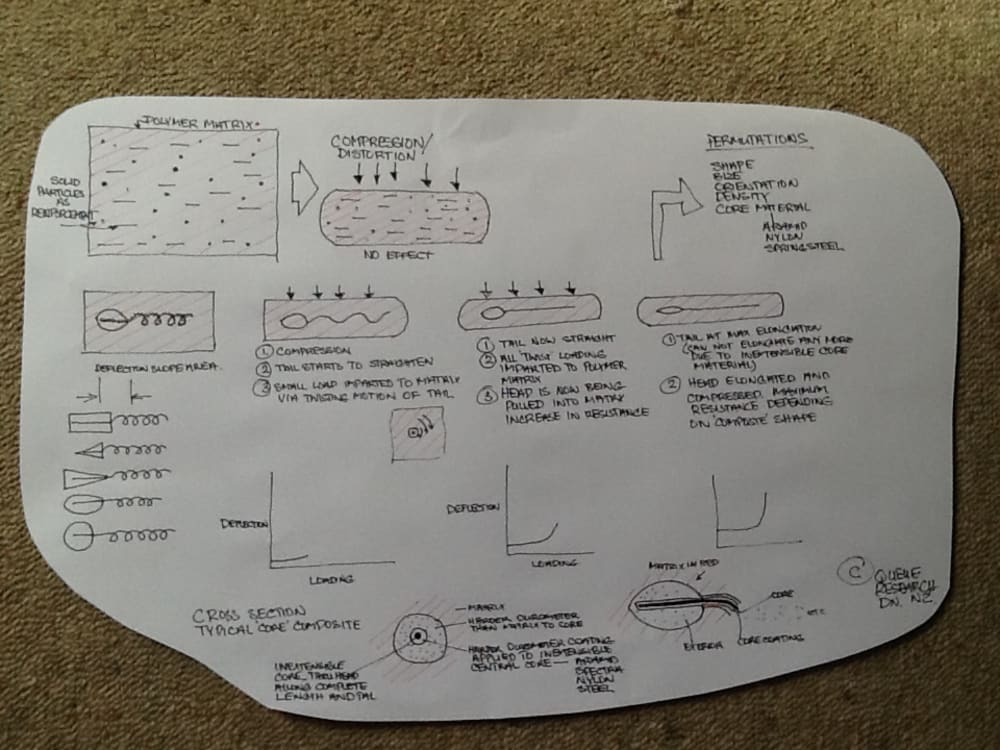 POLYMER MATRIX
SOLID
PARTICLES
AS
REINFORCEMENT
COMPRESSION/
DISTORTION
NO EFFECT
PERMUTATIONS
SHAPE
SIZE
ORIENTATION
DENSITY
CORE MATERIAL
ARAMID
NYLON
SPRING STEEL
① COMPRESSION
② TAIL STARTS TO STRAIGHTEN
③ SMALL LOAD IMPARTED TO MATRIX
VIA TWISTING MOTION OF TAIL
① TAIL NOW STRAIGHT
② ALL 'TWIST' LOADING
IMPARTED TO POLYMER
MATRIX
③ HEAD IS NOW BEING
PULLED INTO MATRIX
INCREASE IN RESISTANCE
① TAIL AT MAX ELONGATION
(CAN NOT ELONGATE ANY MORE
DUE TO INEXTENSIBLE CORE
MATERIAL)
② HEAD ELONGATED AND
COMPRESSED. MAXIMUM
RESISTANCE DEPENDING
ON 'COMPOSITE' SHAPE
DEFLECTION SLOPE AREA.
DEFLECTION
LOADING
DEFLECTION
LOADING
CROSS SECTION
TYPICAL 'CORE' COMPOSITE
MATRIX
HARDER DUROMETER
THAN MATRIX TO CORE
HARDER DUROMETER COATING
APPLIED TO INEXTENSIBLE
CENTRAL CORE — ARAMID
SPECTRA
NYLON
STEEL
INEXTENSIBLE
CORE THRU HEAD
ALONG COMPLETE
LENGTH AND TAIL
MATRIX IN RED
CORE
ETC
CORE COATING
EXTERIOR
© QUEUE
RESEARCH
DN. NZ